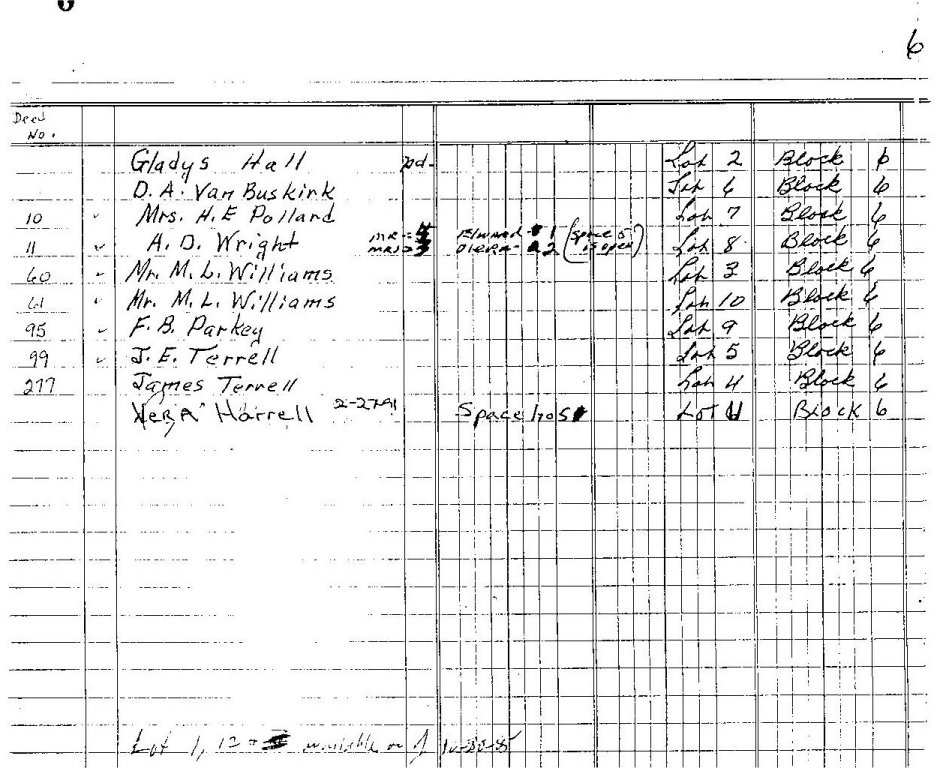 6
Deed
No.
Gladys Hall pd. Lot 2 Block 6
D. A. Van Buskirk Lot 6 Block 6
10 ✓ Mrs. H. E Pollard Lot 7 Block 6
11 ✓ A. D. Wright MR - 4 MRS - 3 #1 #2 (Space 5 is open) Lot 8 Block 6
60 ✓ Mr. M. L. Williams Lot 3 Block 6
61 ✓ Mr. M. L. Williams Lot 10 Block 6
95 ✓ F. B. Parkey Lot 9 Block 6
99 ✓ J. E. Terrell Lot 5 Block 6
277 James Terrell Lot 4 Block 6
Harrell Space Lot 11 Block 6
Lot 1, 12 available